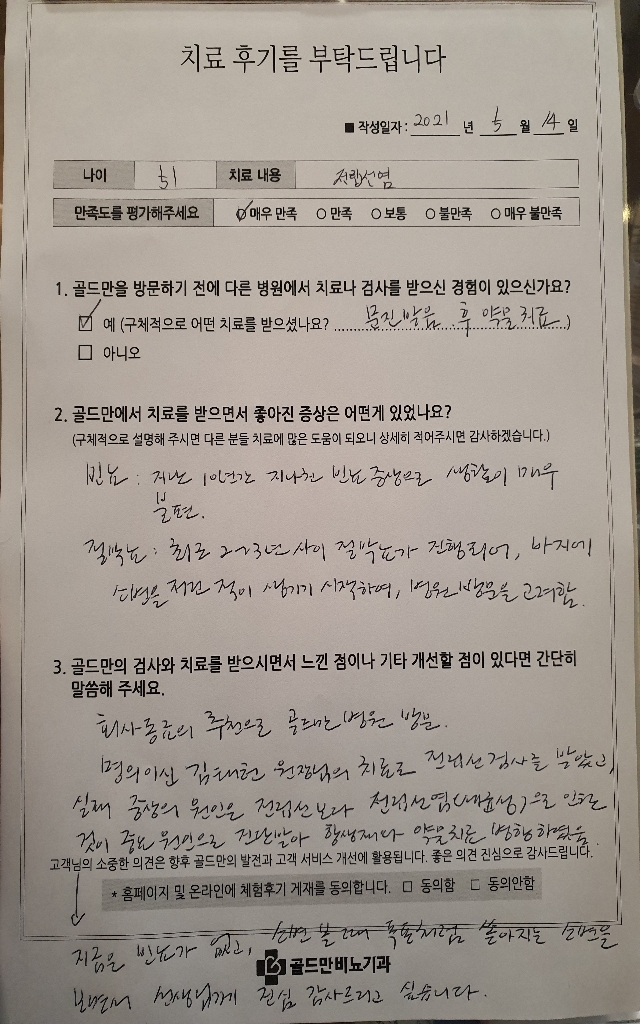 치료 후기를 부탁드립니다
■ 작성일자 : 2021 년 5 월 14 일
나이 51 치료 내용 전립선염
만족도를 평가해주세요 ○매우 만족 ○ 만족 ○ 보통 ○ 불만족 ○ 매우 불만족
1. 골드만을 방문하기 전에 다른 병원에서 치료나 검사를 받으신 경험이 있으신가요?
☑ 예 (구체적으로 어떤 치료를 받으셨나요? 문진 받음 후 약물치료 )
□ 아니오
2. 골드만에서 치료를 받으면서 좋아진 증상은 어떤게 있었나요?
(구체적으로 설명해 주시면 다른 분들 치료에 많은 도움이 되오니 상세히 적어주시면 감사하겠습니다.)
빈뇨 : 지난 10년간 지나친 빈뇨 증상으로 생활이 매우
불편.
절박뇨 : 최근 2~3년 사이 절박뇨가 진행되어, 바지에
소변을 저린 적이 생기기 시작하여, 병원 방문을 고려함.
3. 골드만의 검사와 치료를 받으시면서 느낀 점이나 기타 개선할 점이 있다면 간단히
말씀해 주세요.
회사동료의 추천으로 골드만병원 방문.
명의이신 김태헌 원장님의 치료로 전립선 검사를 받았고,
실제 증상의 원인은 전립선보다 전립선염(세균성)으로 인한
것이 주요 원인으로 진단받아 항생제와 약물치료 병행하였음.
고객님의 소중한 의견은 향후 골드만의 발전과 고객 서비스 개선에 활용됩니다. 좋은 의견 진심으로 감사드립니다.
* 홈페이지 및 온라인에 체험후기 게재를 동의합니다. □ 동의함 □ 동의안함
지금은 빈뇨가 없고, 소변 볼 때 폭포처럼 쏟아지는 소변을
골드만비뇨기과
보면서 선생님께 진심 감사드리고 싶습니다.